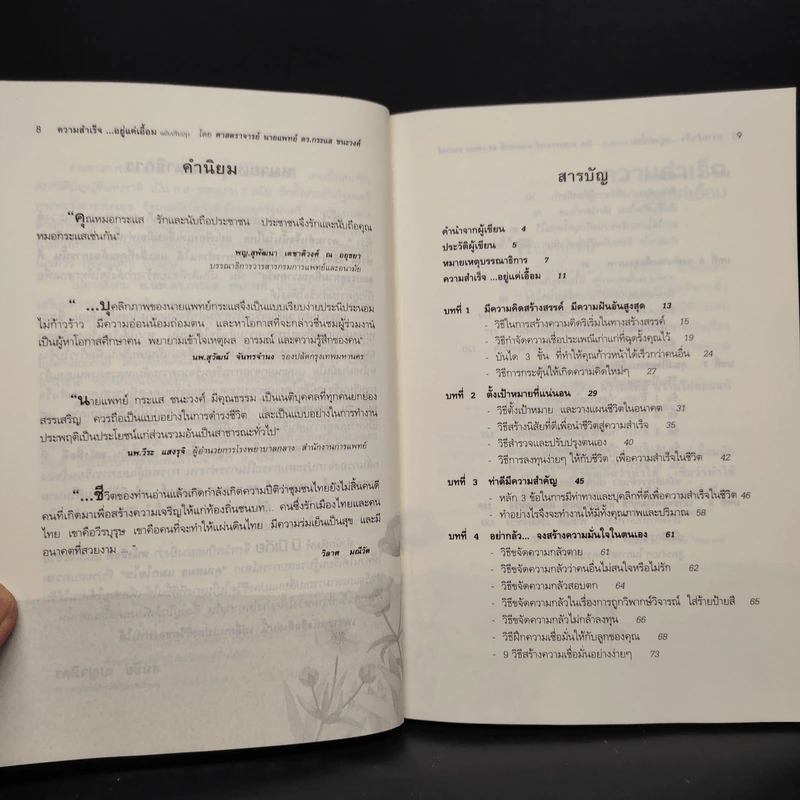 8 ความสำเร็จ ...อยู่แค่เอื้อม ฉบับปรับปรุง โดย ศาสตราจารย์ นายแพทย์ ดร.กระแส ชนะวงศ์
คำนิยม
"คุณหมอกระแส รักและนับถือประชาชน ประชาชนจึงรักและนับถือคุณ
หมอกระแสเช่นกัน"
พญ.สุพัฒนา เดชาติวงศ์ ณ อยุธยา
บรรณาธิการวารสารกรมการแพทย์และอนามัย
" ...บุคลิกภาพของนายแพทย์กระแสจึงเป็นแบบเรียบง่ายประนีประนอม
ไม่ก้าวร้าว มีความอ่อนน้อมถ่อมตน และหาโอกาสที่จะกล่าวชื่นชมผู้ร่วมงาน
เป็นผู้หาโอกาสศึกษาคน พยายามเข้าใจเหตุผล อารมณ์ และความรู้สึกของคน"
นพ.สุวัฒน์ จันทรจำนง รองปลัดกรุงเทพมหานคร
"นายแพทย์ กระแส ชนะวงศ์ มีคุณธรรม เป็นเนติบุคคลที่ทุกคนยกย่อง
สรรเสริญ ควรถือเป็นแบบอย่างในการดำรงชีวิต และเป็นแบบอย่างในการทำงาน
ประพฤติเป็นประโยชน์แก่ส่วนรวมอันเป็นสาธารณะทั่วไป"
นพ.วีระ แสงรุจิ ผู้อำนวยการโรงพยาบาลกลาง สำนักงานการแพทย์
"...ชีวิตของท่านอ่านแล้วเกิดกำลังเกิดความปีติว่าชุมชนไทยยังไม่สิ้นคนดี
คนที่เกิดมาเพื่อสร้างความเจริญให้แก่ท้องถิ่นชนบท... คนซึ่งรักเมืองไทยและคน
ไทย เขาคือวีรบุรุษ เขาคือคนที่จะทำให้แผ่นดินไทย มีความร่มเย็นเป็นสุข และมี
อนาคตที่สวยงาม ..."
วิลาศ มณีวัต
9
สารบัญ
คำนำจากผู้เขียน 4
ประวัติผู้เขียน 5
หมายเหตุบรรณาธิการ 7
ความสำเร็จ ...อยู่แค่เอื้อม 11
บทที่ 1 มีความคิดสร้างสรรค์ มีความฝันอันสูงสุด 13
- วิธีในการสร้างความคิดริเริ่มในทางสร้างสรรค์ 15
- วิธีกำจัดความเชื่อประเพณีเก่าแก่ที่ฉุดรั้งคุณไว้ 19
- บันได 3 ขั้น ที่ทำให้คุณก้าวหน้าได้เร็วกว่าคนอื่น 24
- วิธีการกระตุ้นให้เกิดความคิดใหม่ๆ 27
บทที่ 2 ตั้งเป้าหมายที่แน่นอน 29
- วิธีตั้งเป้าหมาย และวางแผนชีวิตในอนาคต 31
- วิธีสร้างนิสัยที่ดีเพื่อนำชีวิตสู่ความสำเร็จ 35
- วิธีสำรวจและปรับปรุงตนเอง 40
- วิธีการลงทุนง่ายๆ ให้กับชีวิต เพื่อความสำเร็จในชีวิต 42
บทที่ 3 ท่าดีมีความสำคัญ 45
- หลัก 3 ข้อในการมีท่าทางและบุคลิกที่ดีเพื่อความสำเร็จในชีวิต 46
- ทำอย่างไรจึงจะทำงานให้มีทั้งคุณภาพและปริมาณ 58
บทที่ 4 อย่ากลัว... จงสร้างความมั่นใจในตนเอง 61
- วิธีขจัดความกลัวตาย 61
- วิธีขจัดความกลัวว่าคนอื่นไม่สนใจหรือไม่รัก 62
- วิธีขจัดความกลัวสอบตก 64
- วิธีขจัดความกลัวในเรื่องการถูกวิพากษ์วิจารณ์ ใส่ร้ายป้ายสี 65
- วิธีขจัดความกลัวไม่กล้าลงทุน 66
- วิธีฝึกความเชื่อมั่นให้กับลูกของคุณ 68
- 9 วิธีสร้างความเชื่อมั่นอย่างง่ายๆ 73